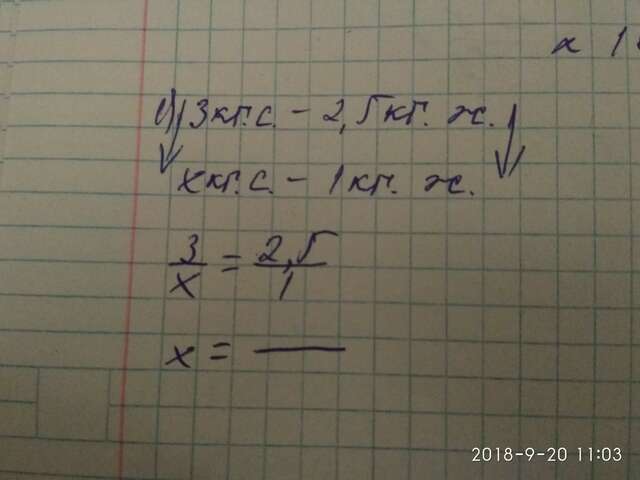 х 1
1) 3 кг.с. – 2,5 кг. ж.
х кг.с. – 1 кг. ж.
3/х = 2,5/1
х = —
2018-9-20 11:03